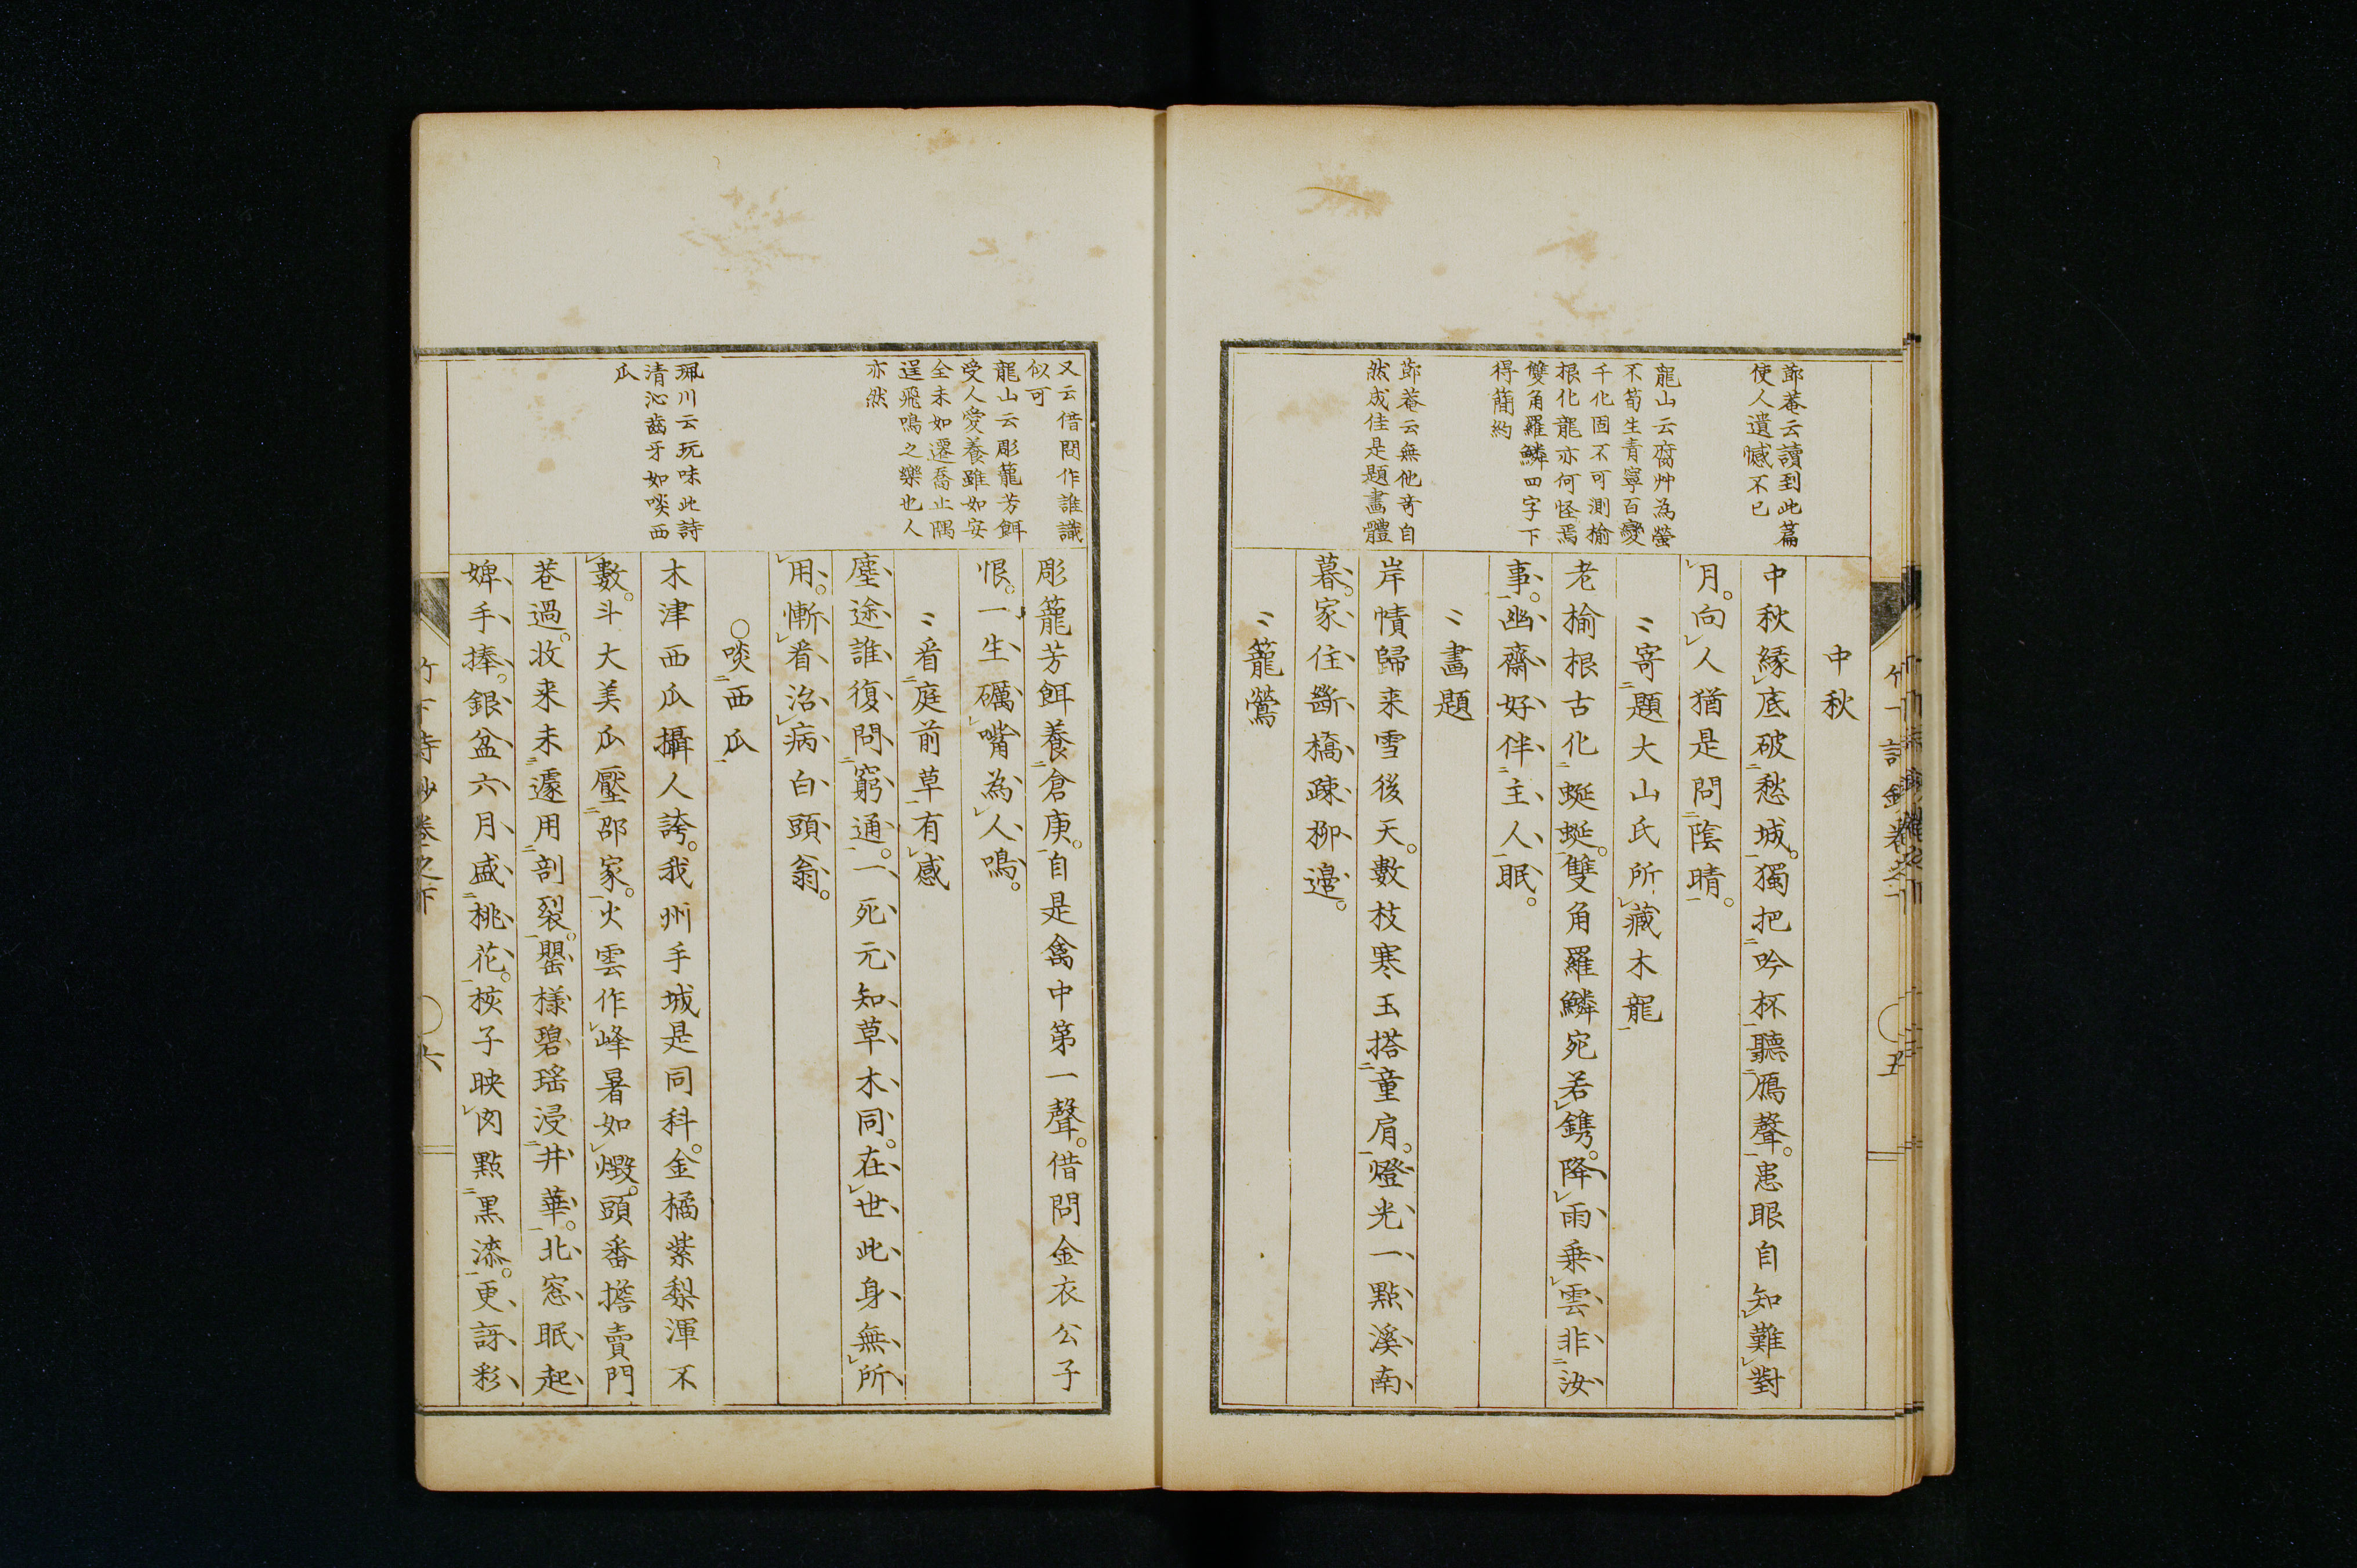 節菴云讀到此篇
使人遺憾不已
龍山云腐艸為螢
不筍生青寧百變
千化固不可測楡
根化龍亦何怪焉
雙角羅鱗四字下
得簡約
節菴云無他竒自
然成佳是題畫體
中秋
中秋緣底破愁城。獨把吟杯聽鴈聲。患眼自知難對
月。向人猶是問陰晴。
〻寄題大山氏所藏木龍
老楡根古化蜒蜒。雙角羅鱗宛若鐫。降雨乗雲非汝
事。幽齋好伴主人眠。
〻畫題
岸幘歸来雪後天。數枝寒玉搭童肩。燈光一點溪南
暮。家住斷橋疎柳邉。
〻籠鶯
又云借問作誰識
似可
龍山云彫蘢芳餌
受人愛養雖如安
全未如遷喬止隅
逞飛鳴之樂也人
亦然
珮川云玩味此詩
清沁齒牙如啖西
瓜
彫籠芳餌養倉庚。自是禽中第一聲。借問金衣公子
恨。一生礪嘴為人鳴。
〻看庭前草有感
塵途誰復問窮通。一死元知草木同。在世此身無所
用。慚看治病白頭翁。
○啖西瓜
木津西瓜攝人誇。我州手城是同科。金橘紫梨渾不
數。斗大美瓜壓邵家。火雲作峰暑如燬。頭番擔賣門
巷過。收来未遽用剖裂。罌樣碧瑶浸井華。北窓眠起
婢手捧。銀盆六月盛桃花。核子映肉點黒漆。更訝彩
竹下詩鈔卷之下 ○六